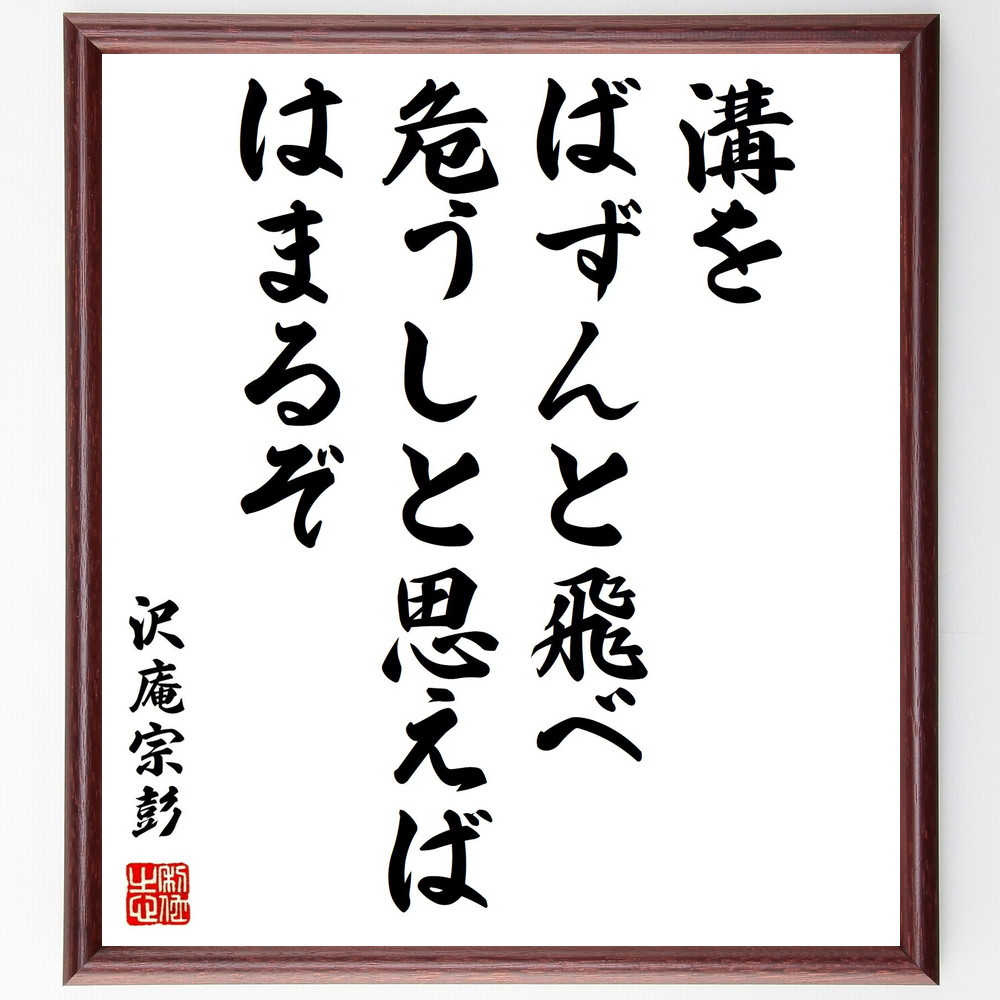 溝を
ばずんと飛べ
危うしと思えば
はまるぞ
沢庵宗彭